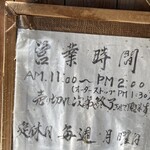 営業時間
AM.11:00〜PM2:00
(オーダーストップPM1:30)
売切れ次第終了
定休日 毎週月曜日